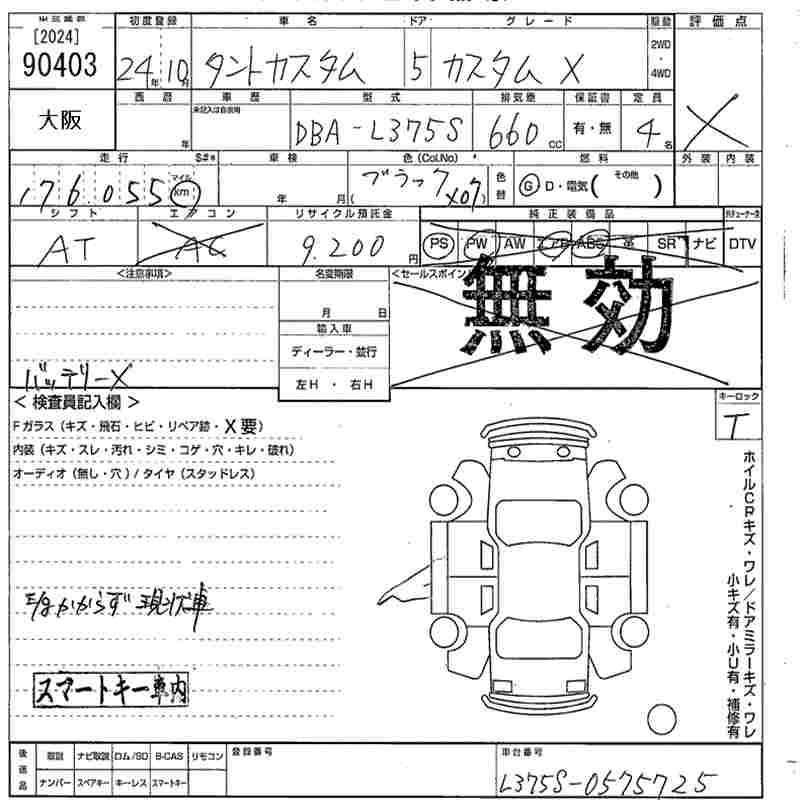 [2024]
90403
大阪
初度登録 車名 ドア グレード 駆動 評価点
24年10月 タントカスタム 5 カスタム X 2WD・4WD
X
西暦 車歴 型式 排気量 保証書 定員
年 未記入は自家用 DBA-L375S 660cc 有・無 4名
走行 S#* 車検 色(Col.No) 燃料 外装 内装
176,055 マイル km 年 月( ブラック X07 ) 色替 G・D・電気( その他 )
シフト エアコン リサイクル預託金 純正装備品
AT AC 9.200円 PS PW AW エアB ABS 革 SR ナビ DTV
<注意事項> 名変期限 <セールスポイント
無効
月 日
輸入車
ディーラー・並行
左H・右H
バッテリーX
<検査員記入欄> キーロック
T
Fガラス(キズ・飛石・ヒビ・リペア跡・X要)
内装(キズ・スレ・汚れ・シミ・コゲ・穴・キレ・破れ)
オーディオ(無し・穴)/タイヤ(スタッドレス)
ホイルCPキズ・ワレ/ドアミラーキズ・ワレ
小キズ有・小U有・補修有
E/gかからず 現状車
スマートキー車内
後送品 取説 ナビ取説 ロム/SD B-CAS リモコン 登録番号 車台番号
ナンバー スペアキー キーレス スマートキー L375S-0575725